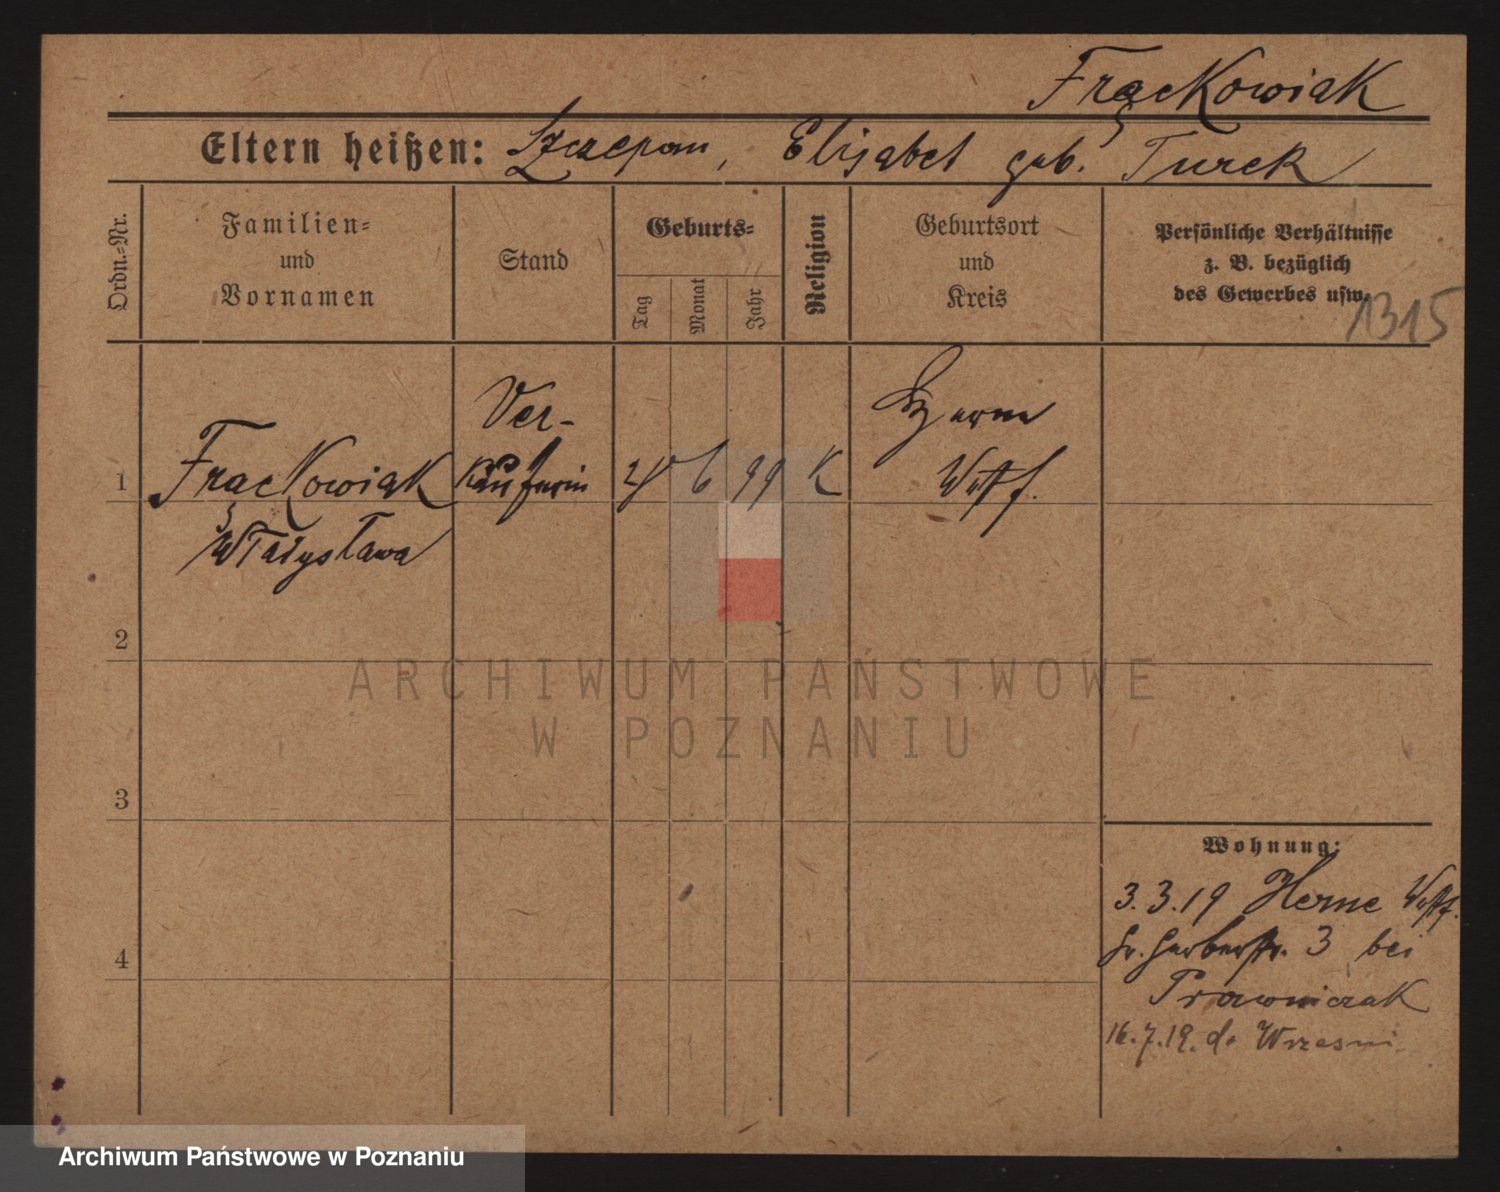 Frąckowiak
Eltern heißen: Szczepan, Elisabet geb. Turek
Ordn.-Nr.
Familien-
und
Vornamen
Stand
Geburts-
Tag
Monat
Jahr
Religion
Geburtsort
und
Kreis
Persönliche Verhältnisse
z. B. bezüglich
des Gewerbes usw.
1315
1
Frąckowiak
Władysława
Ver-
käuferin
6
99
K
Herne
Westf.
2
3
4
Wohnung:
3.3.19 Herne Westf.
Gr. Gerberstr. 3 bei
Prawniczak
16.7.19. do Wrześni
ARCHIWUM PAŃSTWOWE
W POZNANIU
Archiwum Państwowe w Poznaniu